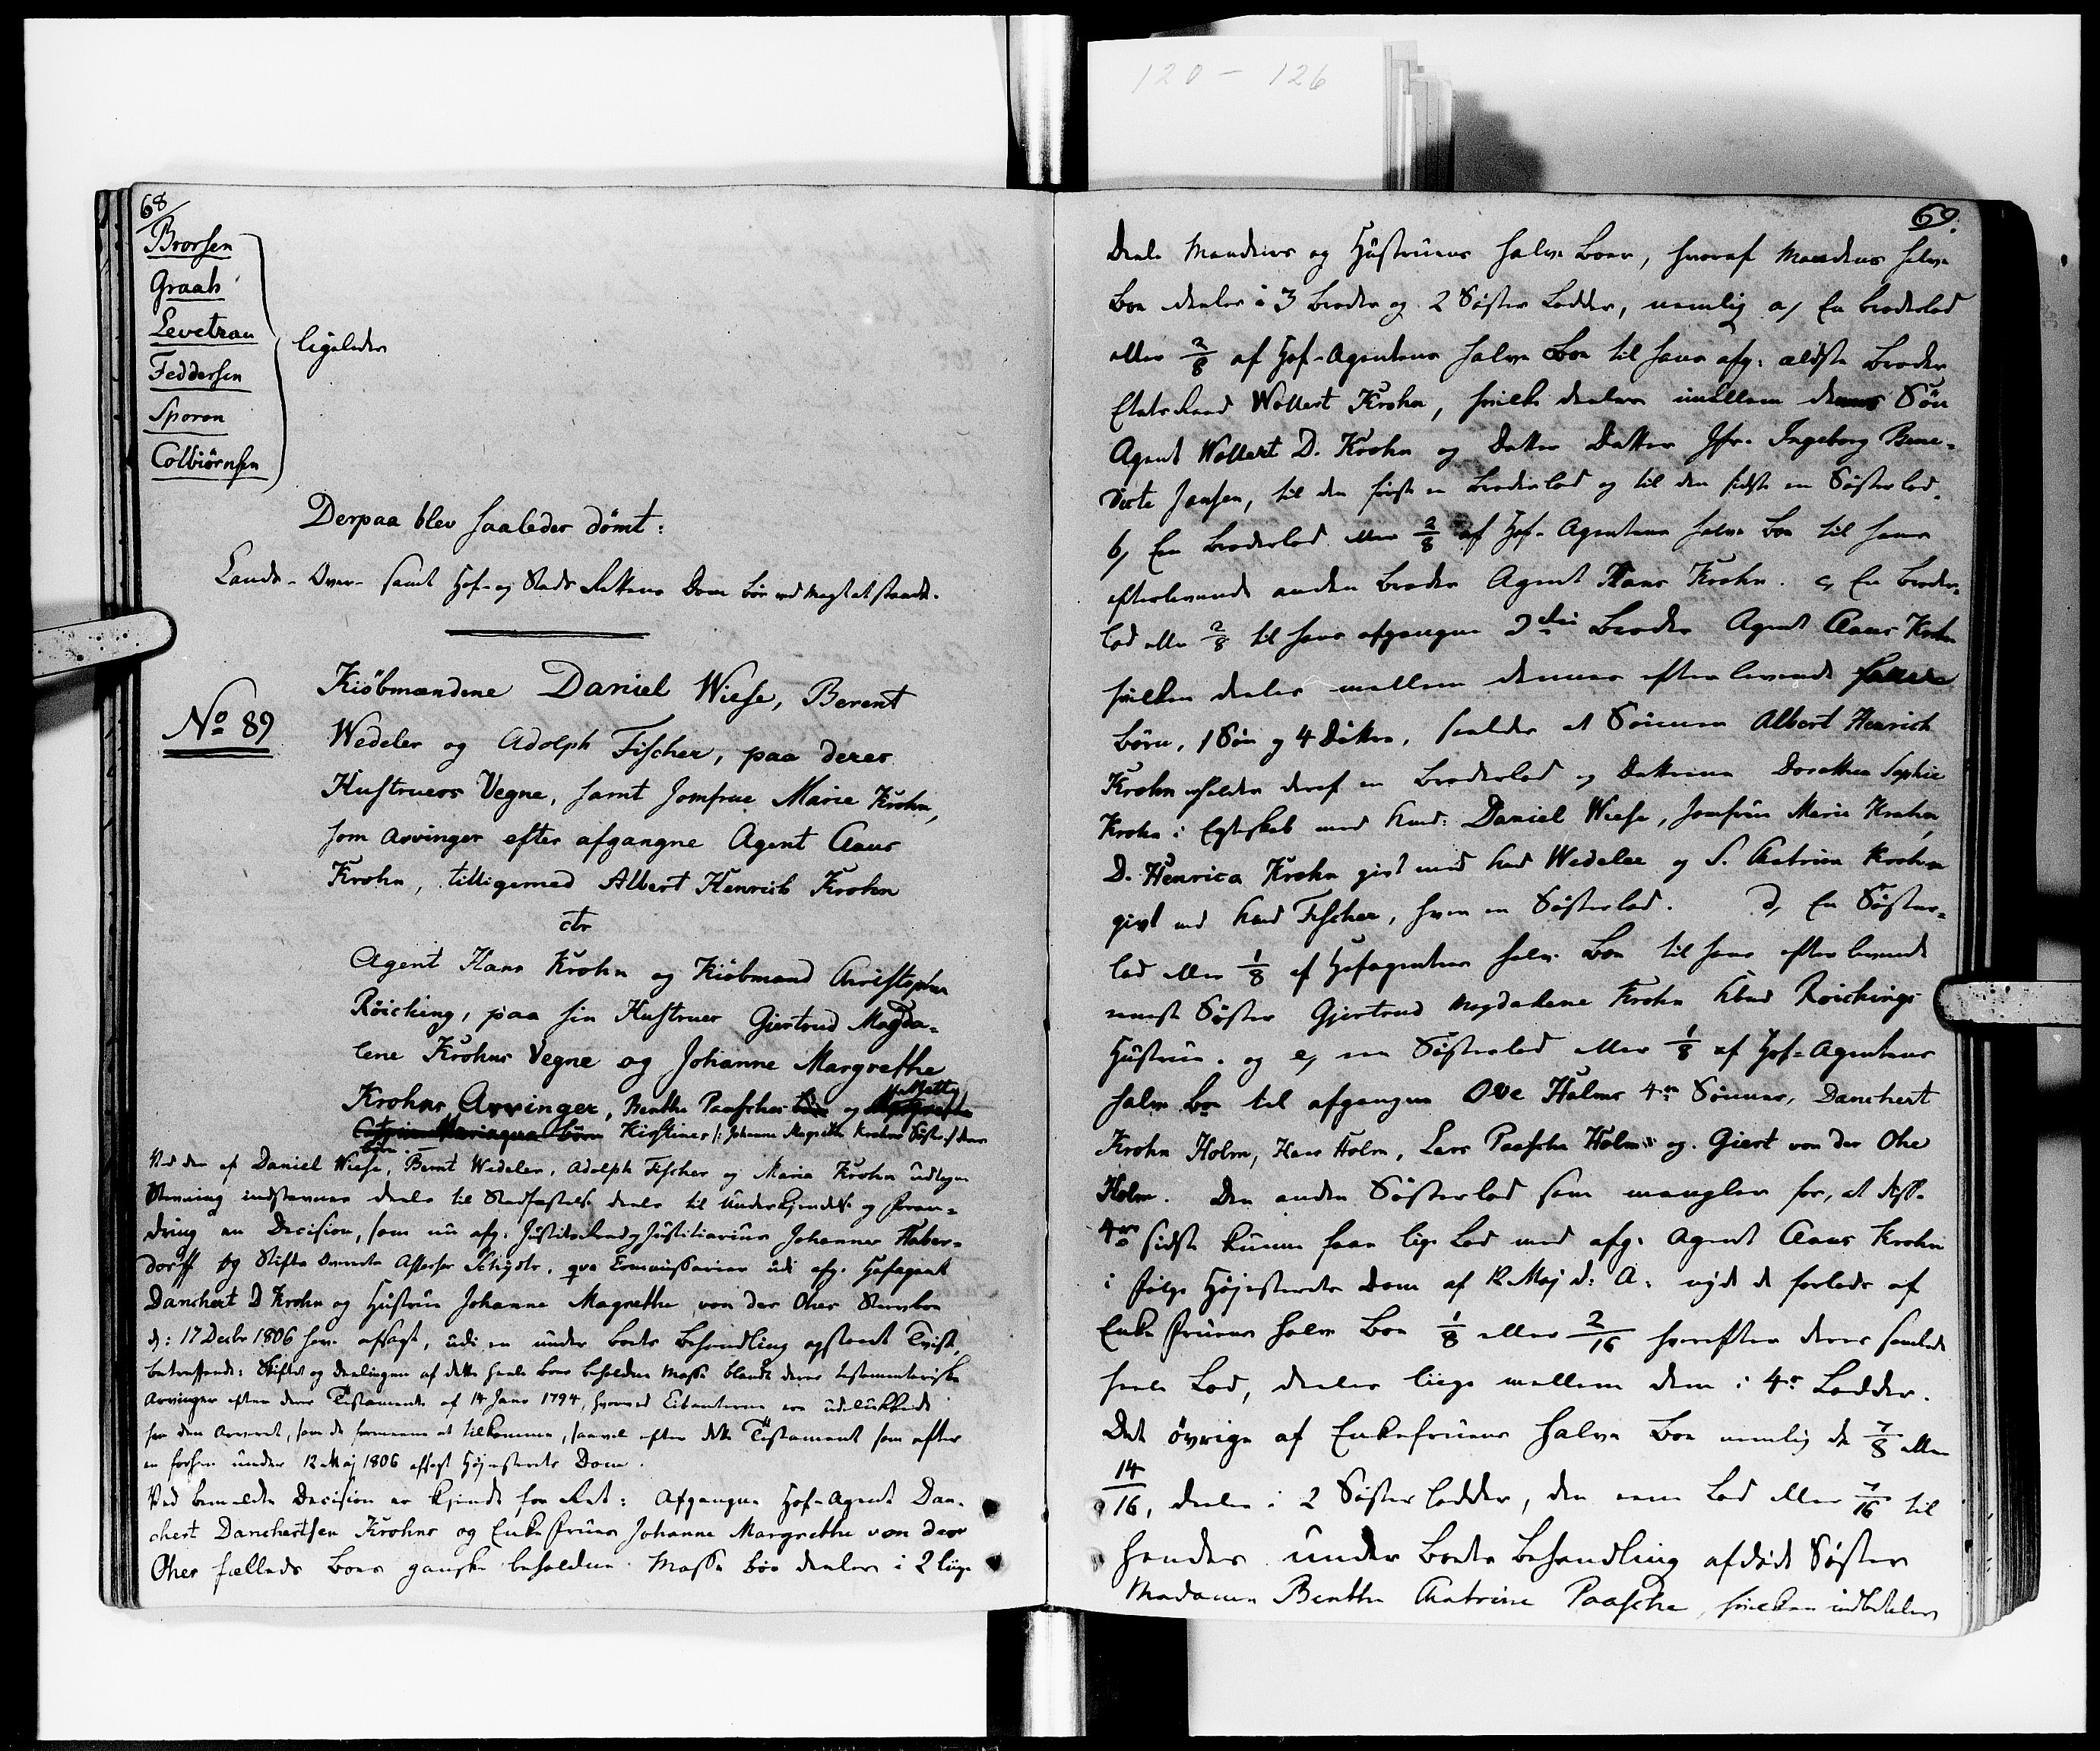 120 - 126
68
Brorsen
Graah
Levetzau
Feddersen
Sporon
Colbiörnsen
ligeledes
Derpaa blev saaledes dömt:
Lands-Over- samt Hof- og Stads Rettens Dom bör ved Magt at staae.
No 89
Kiöbmændene Daniel Wiese, Berent
Wedeler og Adolph Fischer, paa deres
Hustruers Vegne, samt Jomfrue Marie Krohn,
som Arvinger efter afgangne Agent Claus
Krohn, tilligemed Albert Henrich Krohn
ctr
Agent Hans Krohn og Kiöbmand Christopher
Röiching, paa sin Hustrues Giertrud Magda-
lene Krohns Vegne og Johanne Margrethe
Krohns Arvinger, Benthe Paasches og Mette
Kirstines /: Johanne Magrethe Krohns Söster :/ deres
Börn.
Ved den af Daniel Wiese, Bernt Wedeler, Adolph Fischer og Maria Krohn udtagne
Stevning indstevnes deels til Stadfæstelse deels til Underkjendelse og Foran-
dring en Decision, som nu afg. Justitsraad og Justitiarius Johannes Haber-
dorff og Stifts Overrets Assessor Schydtz, qva Commissarier udi afg. Hofagent
Danchert D Krohn og Hustrue Johanne Magrethe von der Ohes Stervboe
d: 17 Decbr 1806 have afsagt, udi en under Boets Behandling opstaaet Tvist,
betreffende: Skiftet og Deelingen af dette heele Boes beholdne Massa blandt deres testamentariske
Arvinger efter deres Testamente af 14 Janr 1794, hvorved Citanterne ere udelukkede
fra den Arveret, som de formeene at tilkomme, saavel efter dette Testament som efter
en forhen under 12 Maj 1806 afsagt Höjesterets Dom.
Ved bemeldte Decision er kjendt for Ret: Afgangne Hof-Agent Dan-
chert Danchertsen Krohns og Enke Frues Johanne Margrethe von der
Ohes fælleds Boes ganske beholdne Massa bör deeles i 2 lige
69.
Deele Mandens og Hustruens halve Boer, hvoraf Mandens halve
Boe deeles i 3 Broder og 2 Söster Lodder, nemlig a) En Broderlod
eller 2/8 af Hof-Agentens halve Boe til hans afg: ældste Broder
Etatsraad Wollert Krohn, hvilke deeles imellem dennes Sön
Agent Wollert D. Krohn og Datter Datter Jfr. Ingeborg Bene-
dicte Jansen, til den förste en Broderlod og til den sidste en Sösterlod.
b) En Broderlod eller 2/8 af Hof-Agentens halve Boe til hans
efterlevende anden Broder Agent Hans Krohn. c) En Broder-
lod eller 2/8 til hans afgangne 3die Broder Agent Claus Krohn
hvilken deeles mellem dennes efterlevende
Börn, 1 Sön og 4 Döttre, saaledes at Sönnen Albert Henrich
Krohn erholder deraf en Broderlod og Döttrene Dorothea Sophie
Krohn i Egteskab med Kmd: Daniel Wiese, Jomfrue Marie Krohn,
D. Henrica Krohn givt med Kmd Wedeler og S. Catrine Krohn
givt med Kmd Fischer, hver en Sösterlod. d) En Söster-
lod eller 1/8 af Hofagentens halve Boe til hans efterlevende
eeneste Söster Gjertrud Magdalene Krohn Kbmd Röichings
Hustrue. og e) een Sösterlod eller 1/8 af Hof-Agentens
halve Boe til afgangne Ove Holms 4re Sönner, Danchert
Krohn Holm, Hans Holm, Lars Paasche Holm og Giert von der Ohe
Holm. Den anden Sösterlod som mangler for, at disse
4re sidste kunne faae lige Lod med afg. Agent Claus Krohn
i Fölge Höjesterets Dom af 12 Maj d: A. nyde de forlods af
Enke Fruens halve Boe 1/8 eller 2/16 hvorefter deres samlede
heele Lod, deeles liige mellem dem i 4re Lodder.
Det övrige af Enkefruens halve Boe nemlig de 7/8 eller
14/16, deeles i 2 Söster lodder, den eene Lod eller 7/16 til
hendes under Boets Behandling afdöde Söster
Madame Benthe Catrine Paasche, hvilken indbetales